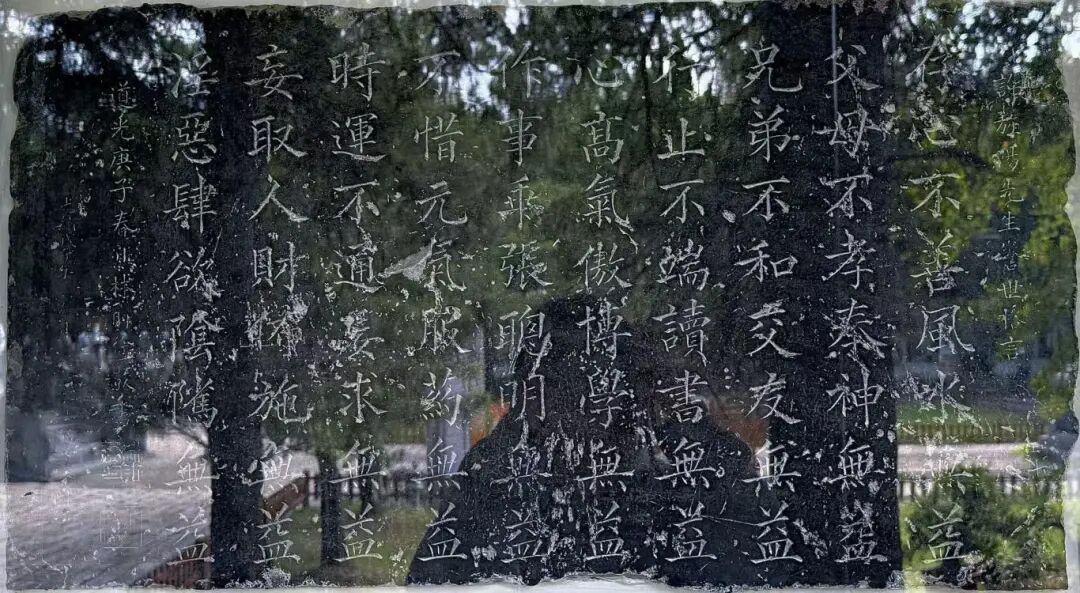 先生世言
存心不善風水無益
父母不孝奉神無益
兄弟不和交友無益
行止不端讀書無益
心髙氣傲博學無益
作事乖張聰明無益
不惜元氣服葯無益
時運不通妄求無益
妄取人財布施無益
淫惡肆欲陰騭無益
道光庚子春